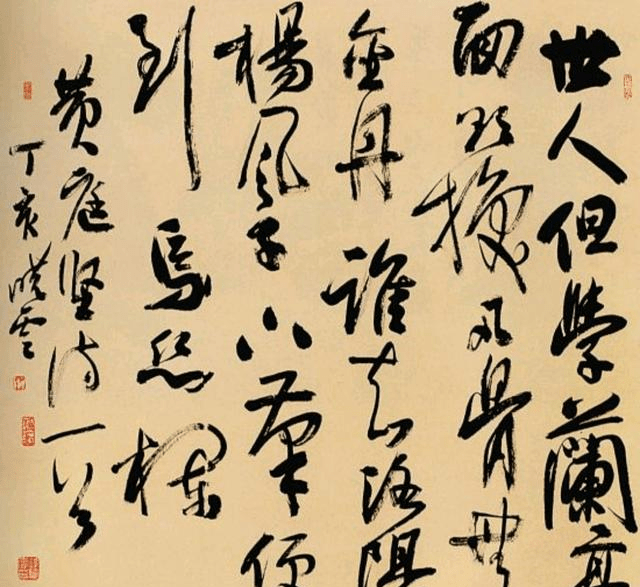 世人但學蘭亭
面欲換凡骨無
金丹誰知洛陽
楊風子下筆便
到烏絲欄
黄庭坚诗一首
丁亥曉雲